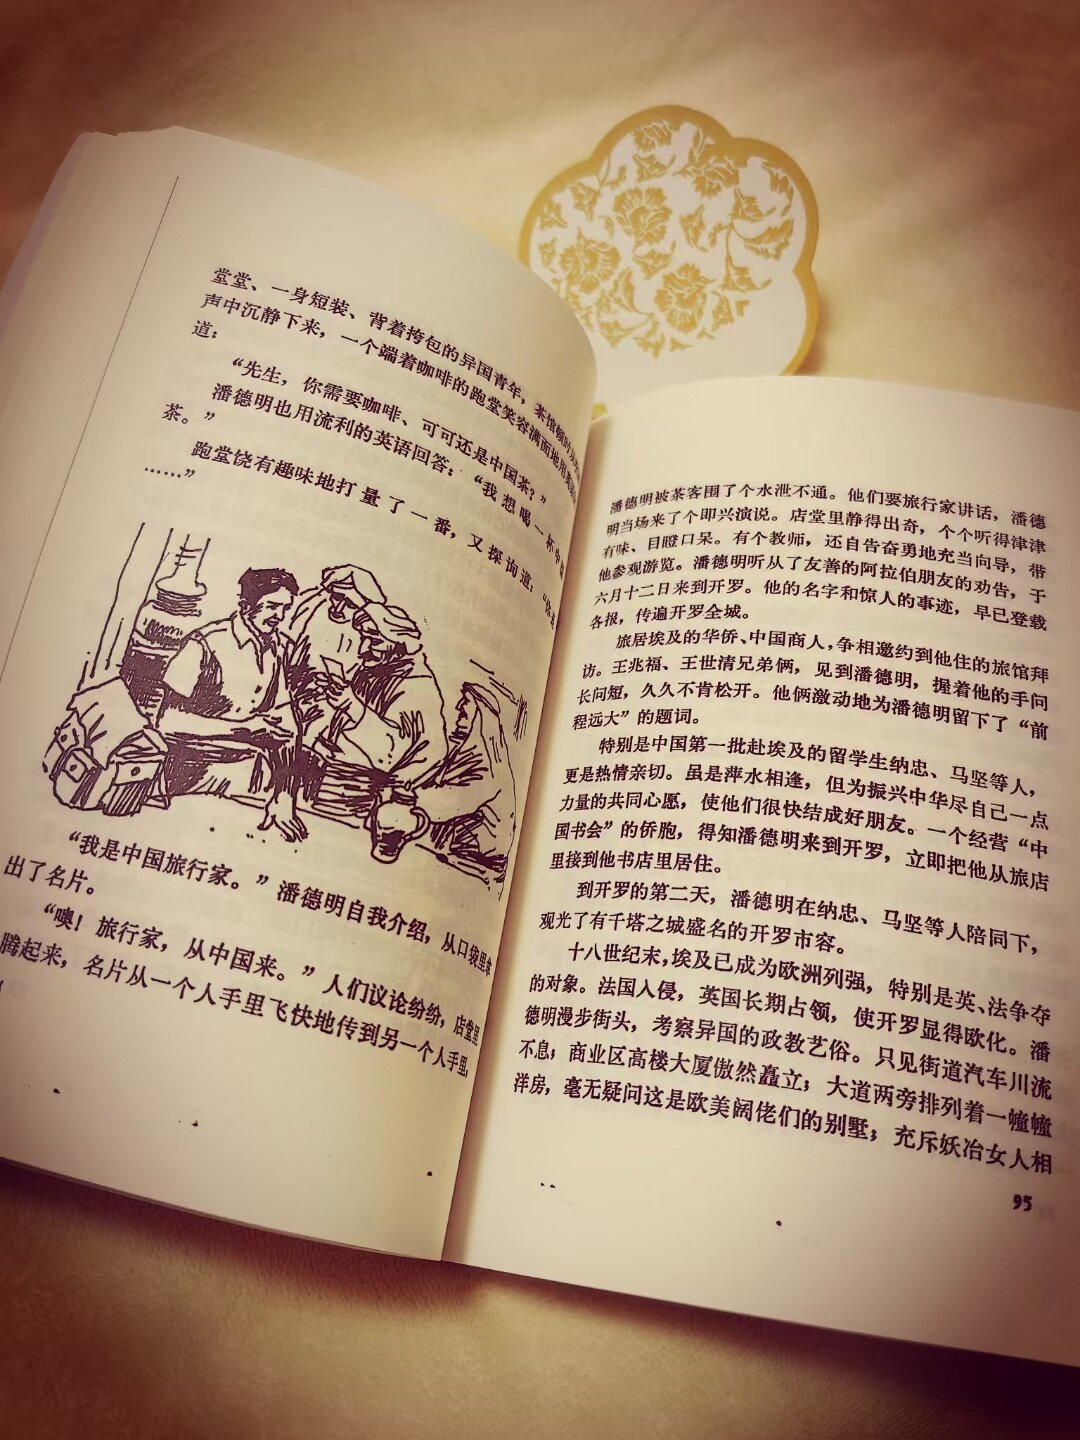 堂堂、一身短装、背着挎包的异国青年，茶馆顿时从
声中沉静下来，一个端着咖啡的跑堂笑容满面地用英语
道：
“先生，你需要咖啡、可可还是中国茶？”
潘德明也用流利的英语回答：“我想喝一杯中国
茶。”
跑堂饶有趣味地打量了一番，又探询道：
……”
“我是中国旅行家。”潘德明自我介绍，从口袋里拿
出了名片。
“噢！旅行家，从中国来。”人们议论纷纷，店堂里
腾起来，名片从一个人手里飞快地传到另一个人手里，
潘德明被茶客围了个水泄不通。他们要旅行家讲话，潘德
明当场来了个即兴演说。店堂里静得出奇，个个听得津津
有味、目瞪口呆。有个教师，还自告奋勇地充当向导，带
他参观游览。潘德明听从了友善的阿拉伯朋友的劝告，于
六月十二日来到开罗。他的名字和惊人的事迹，早已登载
各报，传遍开罗全城。
旅居埃及的华侨、中国商人，争相邀约到他住的旅馆拜
访。王兆福、王世清兄弟俩，见到潘德明，握着他的手问
长问短，久久不肯松开。他俩激动地为潘德明留下了“前
程远大”的题词。
特别是中国第一批赴埃及的留学生纳忠、马坚等人，
更是热情亲切。虽是萍水相逢，但为振兴中华尽自己一点
力量的共同心愿，使他们很快结成好朋友。一个经营“中
国书会”的侨胞，得知潘德明来到开罗，立即把他从旅店
里接到他书店里居住。
到开罗的第二天，潘德明在纳忠、马坚等人陪同下，
观光了有千塔之城盛名的开罗市容。
十八世纪末，埃及已成为欧洲列强，特别是英、法争夺
的对象。法国入侵，英国长期占领，使开罗显得欧化。潘
德明漫步街头，考察异国的政教艺俗。只见街道汽车川流
不息；商业区高楼大厦傲然矗立；大道两旁排列着一幢幢
洋房，毫无疑问这是欧美阔佬们的别墅；充斥妖冶女人相
95